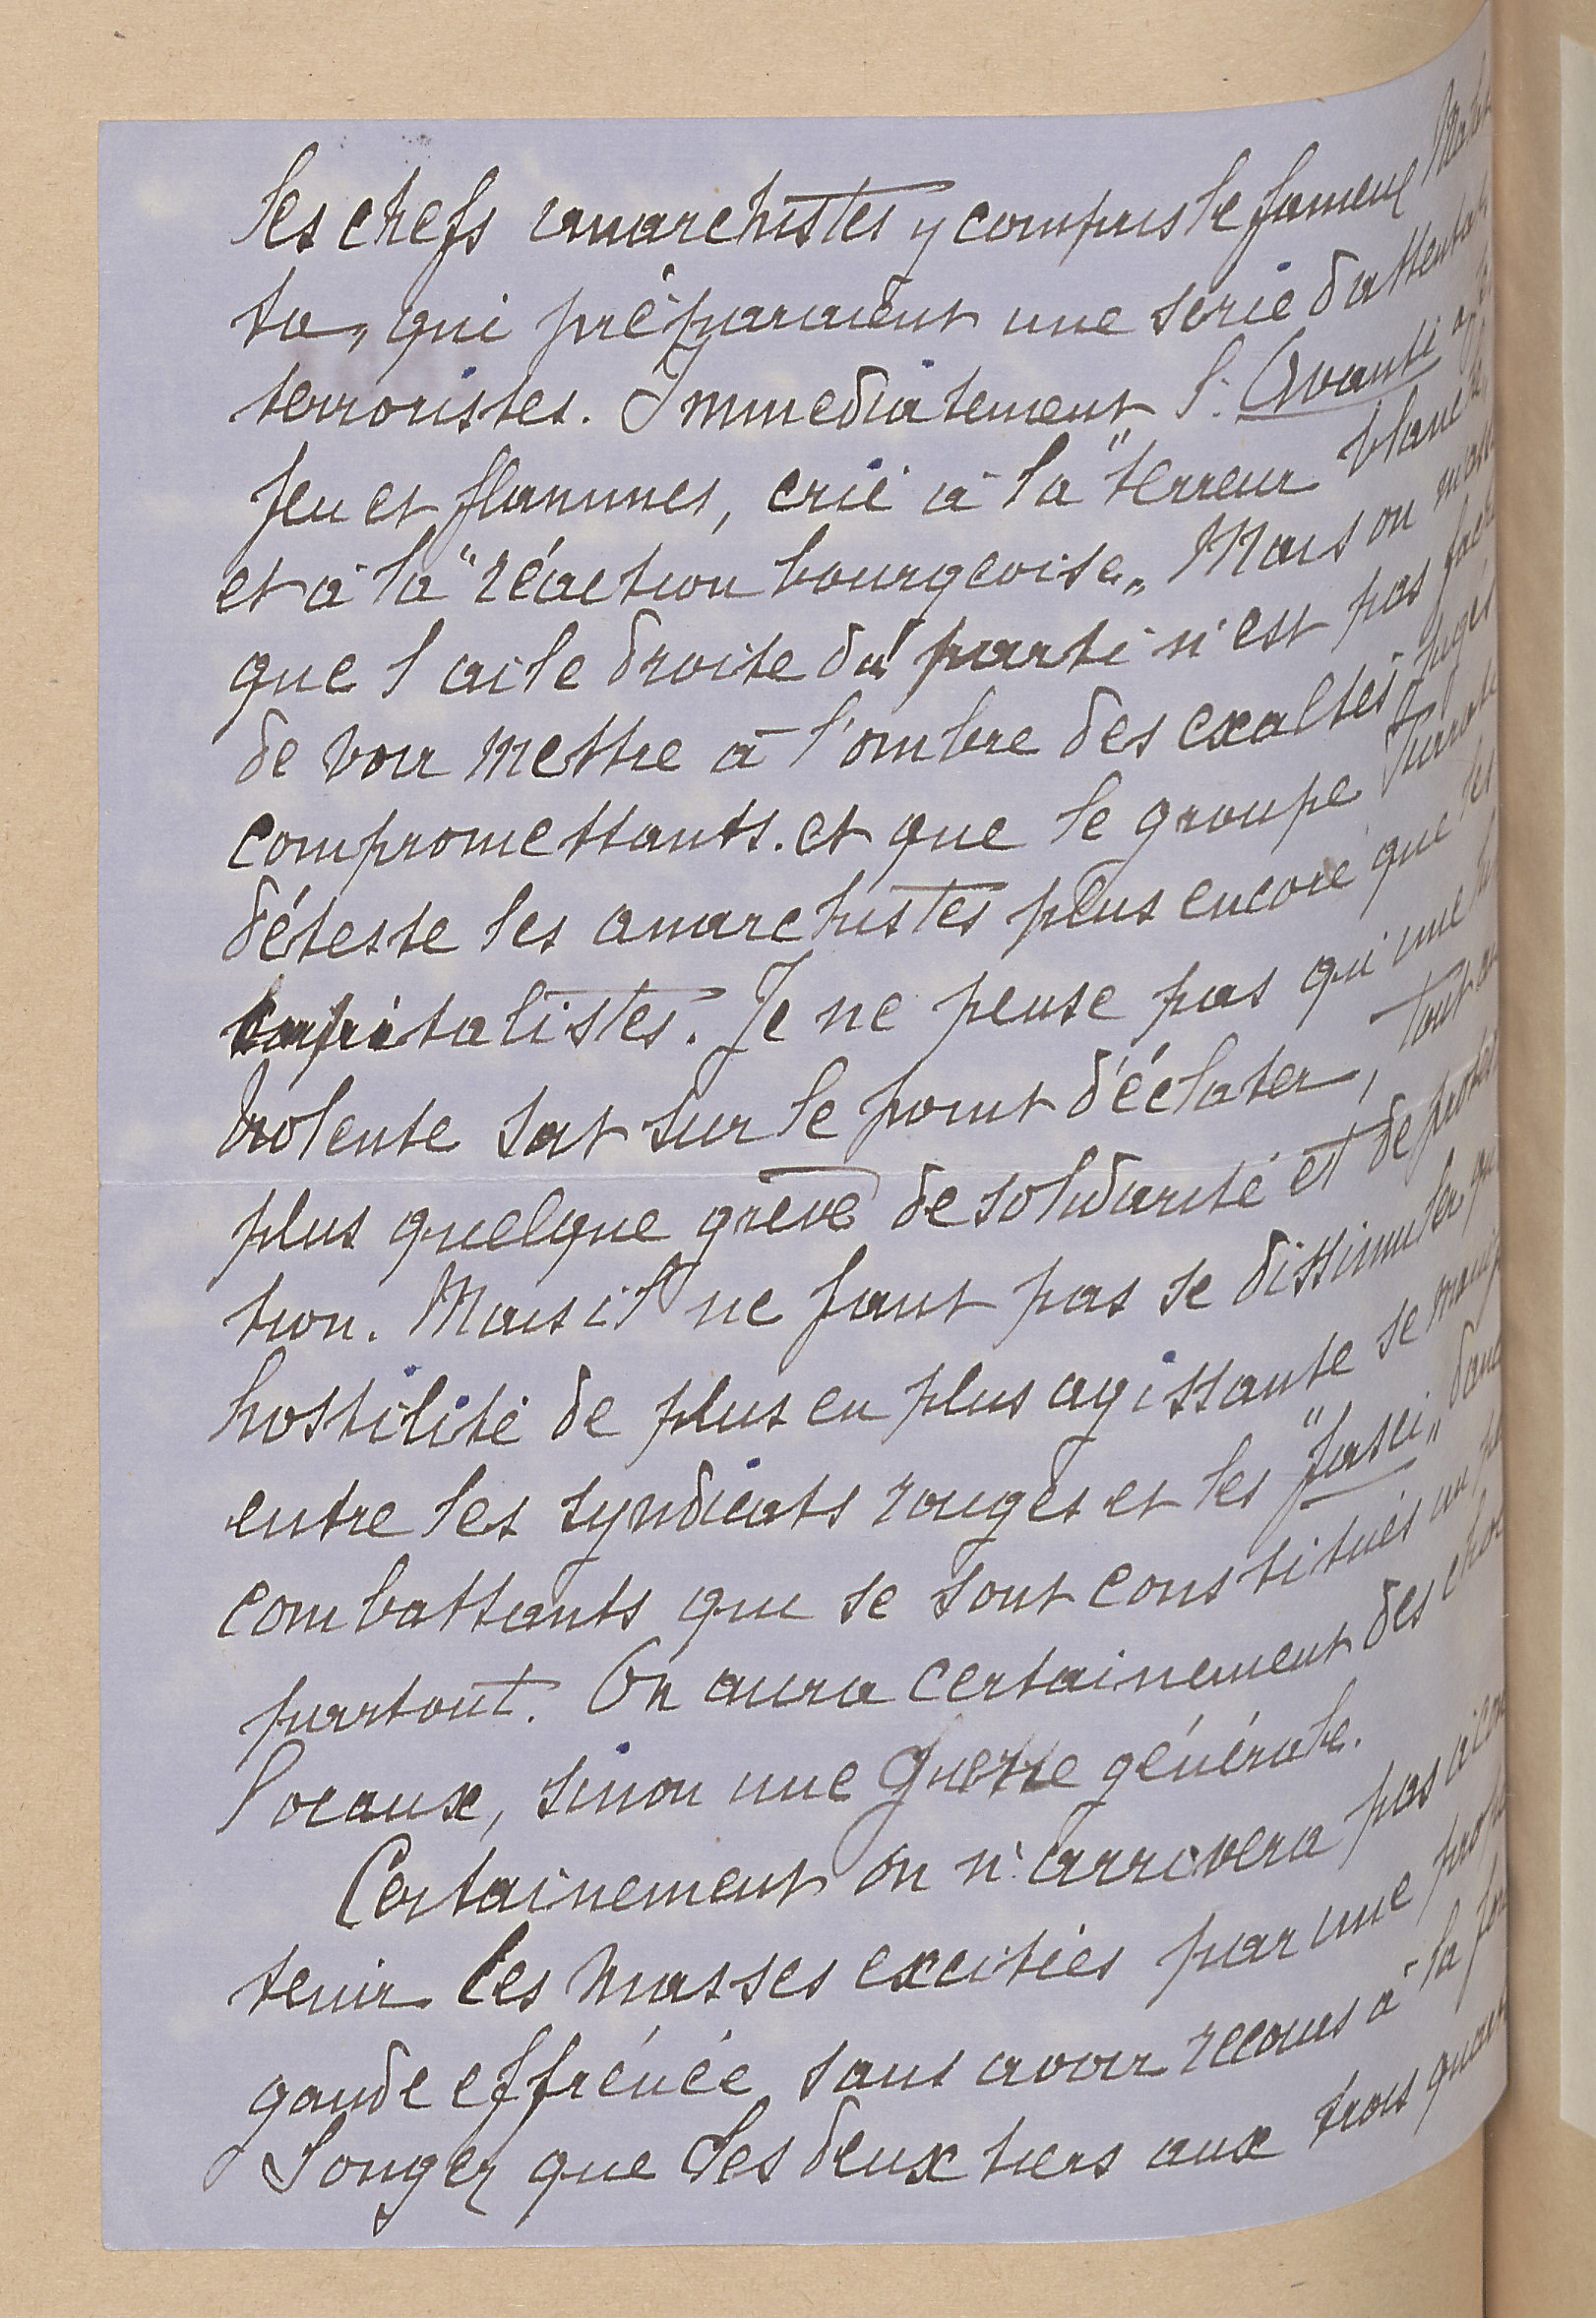 les chefs anarchistes y compris le fameux Malates
ta, qui préparaient une série d'attentats
terroristes. Immédiatement l'Avanti a
feu et flammes, crié à la "terreur blanche
et à la "réaction bourgeoise„ Mais on
que l'aile droite du parti n'est pas
de voir mettre à l'ombre des exaltés jugés
compromettants. et que le groupe Turati
déteste les anarchistes plus encore que les
capitalistes. Je ne pense pas qu'une
violente soit sur le point d'éclater, tout au
plus quelque grève de solidarité et de protesta
tion. Mais il ne faut pas se dissimuler qu
hostilité de plus en plus agissante se manif
entre les syndicats rouges et les "fasci„ d'anc
combattants qui se sont constitués un peu
partout. On aura certainement des chocs
locaux, sinon une guerre générale.
Certainement on n'arrivera pas à con
tenir les masses excitées par une propa
gande effrénée, sans avoir recours à la for
Songez que les deux tiers aux trois quarts